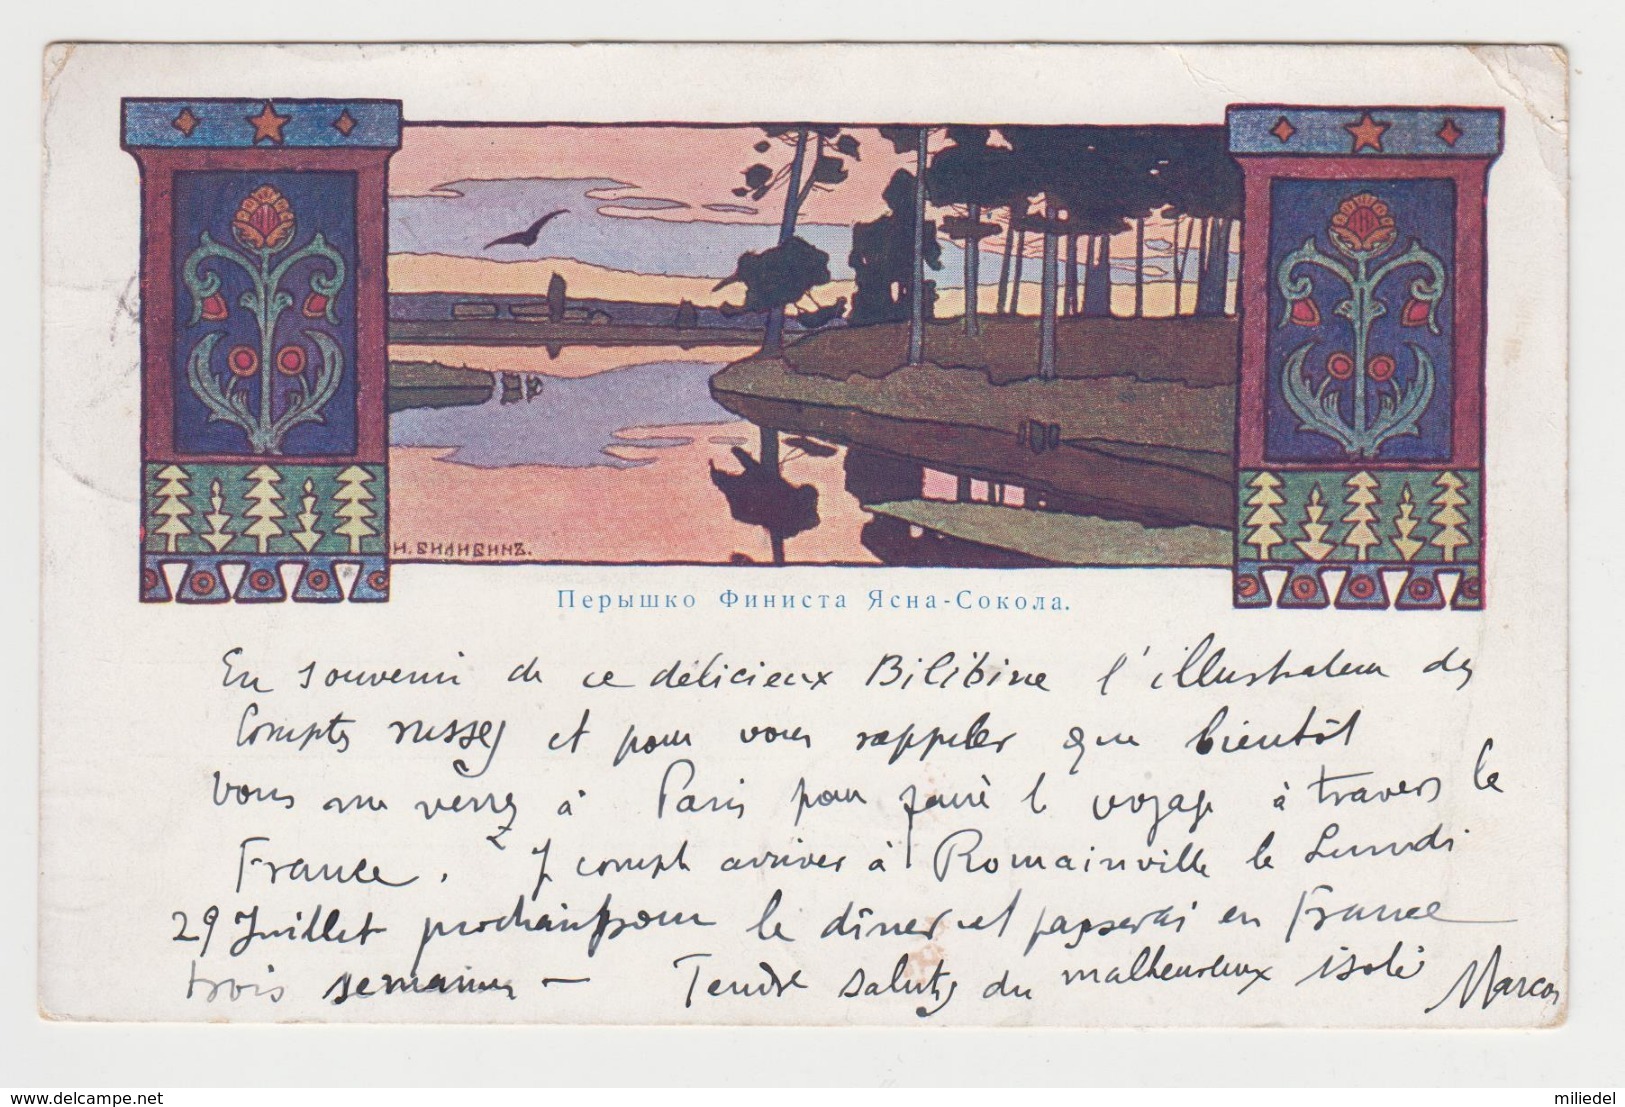 И. БИЛИБИНЪ.
Перышко Финиста Ясна-Сокола.
En souvenir de ce délicieux Bilibine l'illustrateur des
Comptes russes et pour vous rappeler que bientôt
vous me verrez à Paris pour faire le voyage à travers la
France. Je compte arriver à Romainville le Lundi
29 Juillet prochain pour le dîner et passerai en France
trois semaines — Tendres saluts du malheureux isolé Marcos
www.delcampe.net
miliedel